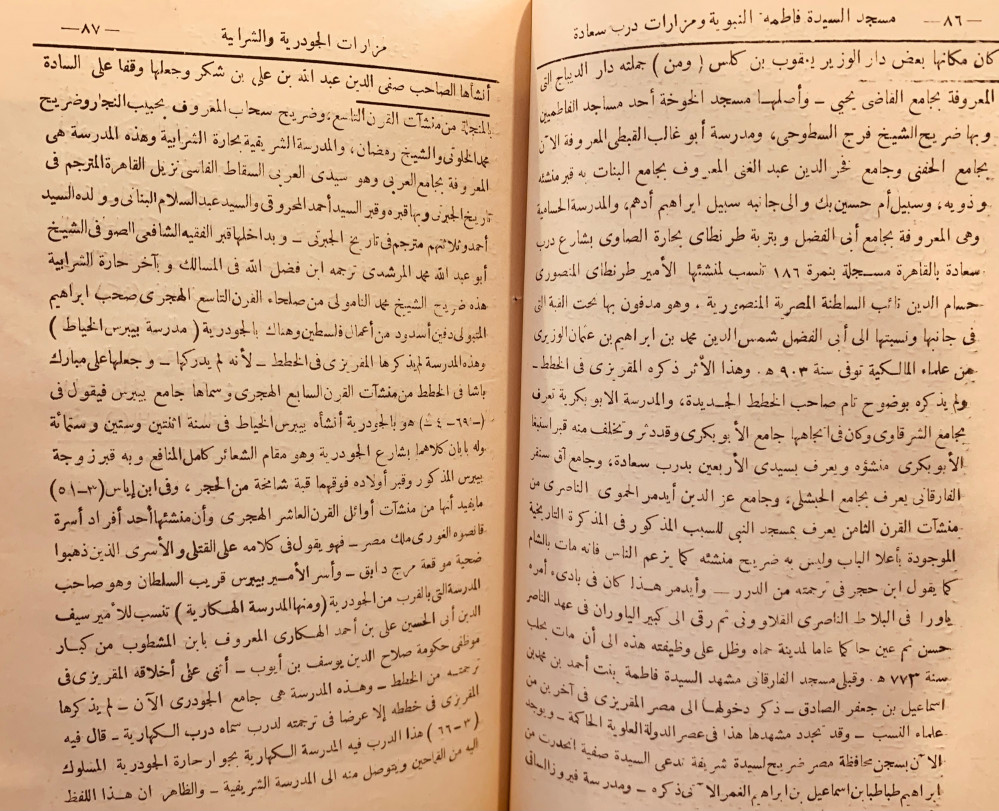 — ٨٦ — مسجد السيدة فاطمة النبوية ومزارات درب سعادة
كان مكانها بعض دار الوزير يعقوب بن كلس ( ومن ) جملته دار الديباج التى
المعروفة بجامع القاضى يحيى ــ وأصلهـا مسجد الخوخة أحد مساجد الفاطميين
وبها ضريح الشيخ فرج السطوحى، ومدرسة أبو غالب القبطى المعروفة الآن
بجامع الحفنى وجامع فخر الدين عبد الغنى المعروف بجامع البنات به قبر منشئه
وذويه، وسبيل أم حسين بك والى جانبه سبيل ابراهيم أدهم، والمدرسة الحسامية
وهى المعروفة بجامع أبى الفضل وبتربة طرنطاى بحارة الصاوى بشارع درب
سعادة بالقاهرة مسجلة بنمرة ١٨٦ تنسب لمنشئها الأمير طرنطاى المنصورى
حسام الدين نائب السلطنة المصرية المنصورية . وهو مدفون بها تحت القبة التى
فى جانبها ونسبتها الى أبى الفضل شمس الدين محمد بن ابراهيم بن عثمان الوزيرى
من علماء المالكية توفى سنة ٩٠٣ هـ . وهذا الأثر ذكره المقريزى فى الخطط ــ
ولم يذكره بوضوح تام صاحب الخطط الجديدة، والمدرسة الابوبكرية تعرف
بجامع الشرقاوى وكان فى اتجاهها جامع الأبوبكرى وقد دثر وتخلف منه قبر اسنبغا
الأبوبكرى منشؤه ويعرف بسيدى الأربعين بدرب سعادة، وجامع آق سنقر
الفارقانى يعرف بجامع الحبشلى، وجامع عز الدين أيدمر الحموى الناصرى من
منشآت القرن الثامن يعرف بمسجد النبى للسبب المذكور فى المذكرة التاريخية
الموجودة بأعلا الباب وليس به ضريح منشئه كما يزعم الناس فانه مات بالشام
كما يقول ابن حجر فى ترجمته من الدرر ــ وأيدمر هـذا كان فى بادىء أمره
ياورا فى البلاط الناصرى القلاوونى ثم رقى الى كبير الياوران فى عهد الناصر
حسن ثم عين حاكما عاما لمدينة حماه وظل على وظيفته هذه الى أن مات بحلب
سنة ٧٧٣ هـ . وقبلى مسجد الفارقانى مشهد السيدة فاطمة بنت أحمد بن محمد بن
اسماعيل بن جعفر الصادق ــ ذكر دخولها الى مصر المقريزى فى آخرين من
علماء النسب ــ وقد تجدد مشهدها هذا فى عصر الدولة العلوية الحاكمة ــ ويوجد
الآن بسجن محافظة مصر ضريح لسيدة شريفة تدعى السيدة صفية انحدرت من
ابراهيم طباطبا بن اسماعيل بن ابراهيم الغمر الآتى ذكره ــ ومدرسة فيروز الساقى
مزارات الجودرية والشرابية — ٨٧ —
أنشأها الصاحب صفى الدين عبد الله بن على بن شكر وجعلها وقفا على السادة
المنجلة من منشآت القرن التاسع، وضريح سحاب المعروف بحبيب النجار وضريح
محمد الخلوتى والشيخ رمضان، والمدرسة الشريقية بحارة الشرابية وهذه المدرسة هى
المعروفة بجامع العربى وهو سيدى العربى السقاط الفاسى نزيل القاهرة المترجم فى
تاريخ الجبرتى وبها قبره وقبر السيد أحمد المحروقى والسيد عبد السلام البنانى وولده السيد
أحمد وثلاثتهم مترجم فى تاريخ الجبرتى ــ وبداخلها قبر الفقيه الشافعى الصوفى الشيخ
أبو عبد الله محمد المرشدى ترجمه ابن فضل الله فى المسالك وآخر حارة الشرابية
هذه ضريح الشيخ محمد النامولى من صلحاء القرن التاسع الهجرى صحب ابراهيم
المتبولى دفين أسدود من أعمال فلسطين وهناك بالجودرية ( مدرسة بيبرس الخياط )
وهذه المدرسة لم يذكرها المقريزى فى الخطط ــ لأنه لم يدركها ــ وجعلها على مبارك
باشا فى الخطط من منشآت القرن السابع الهجرى وسماها جامع بيبرس فيقول فى
هو بالجودرية أنشأه بيبرس الخياط فى سنة اثنتين وستين وستمائة
وله بابان كلاهما بشارع الجودرية وهو مقام الشعائر كامل المنافع وبه قبر زوجة
بيبرس المذكور وقبر أولاده فوقهما قبة شامخة من الحجر ، وفى ابن إياس (٣-٥١)
مايفيد أنها من منشآت أوائل القرن العاشر الهجرى وأن منشئها أحد أفراد أسرة
قانصوه الغورى ملك مصر ــ فهو يقول فى كلامه على القتلى والأسرى الذين ذهبوا
ضحية موقعة مرج دابق ــ وأسر الأمير بيبرس قريب السلطان وهو صاحب
المدرسة التى بالقرب من الجودرية (ومنها المدرسة الهكارية ) تنسب للأمير سيف
الدين أبى الحسين على بن أحمد الهكارى المعروف بابن المشطوب من كبار
موظفى حكومة صلاح الدين يوسف بن أيوب ــ أثنى على أخلاقه المقريزى فى
ترجمته من الخطط ــ وهذه المدرسة هى جامع الجودرى الآن ــ لم يذكرها
المقريزى فى خططه إلا عرضا فى ترجمته لدرب سماه درب الكهارية ــ قال فيه
( ٣-٦٦ ) هذا الدرب فيه المدرسة الكهارية بجوار حارة الجودرية المسلوك
اليه من القماحين ويتوصل منه الى المدرسة الشريفية ــ والظاهر ان هذا اللفظ